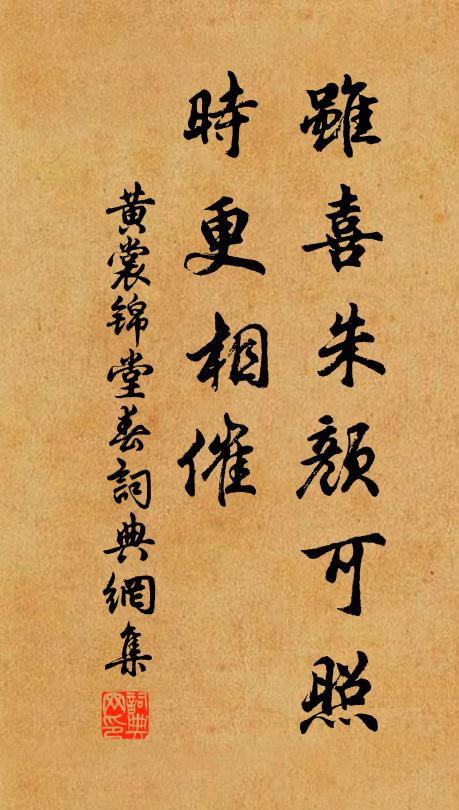 雖喜朱顔可照
時更相催
黄裳锦堂春詞典網集
詞典網印